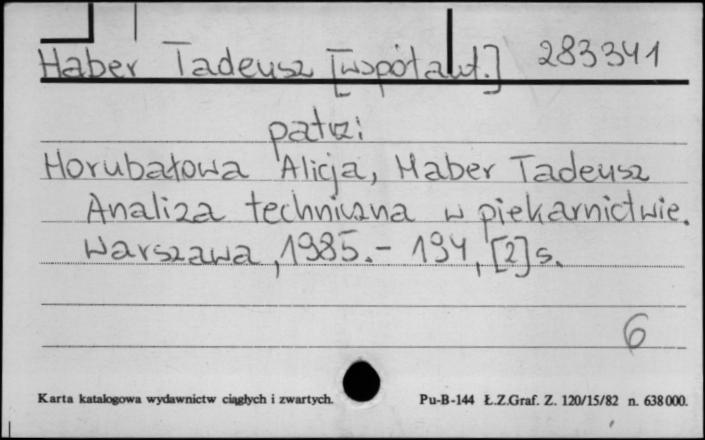 Haber Tadeusz [współaut.] 283341
patrz:
Horubałowa Alicja, Haber Tadeusz
Analiza techniczna w piekarnictwie.
Warszawa, 1985.- 194, [2] s.
6
Karta katalogowa wydawnictw ciągłych i zwartych. Pu-B-144 Ł.Z.Graf. Z. 120/15/82 n. 638000.